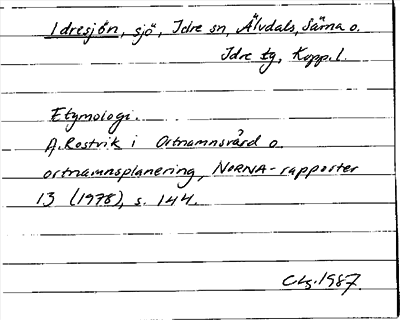 Idresjön, sjö, Idre sn, Älvdals, Särna o.
Idre tg, Kopp. l.
Etymologi.
A. Rostvik i Ortnamnsvård o.
ortnamnsplanering, NORNA-rapporter
13 (1978), s. 144.
CLg. 1987.